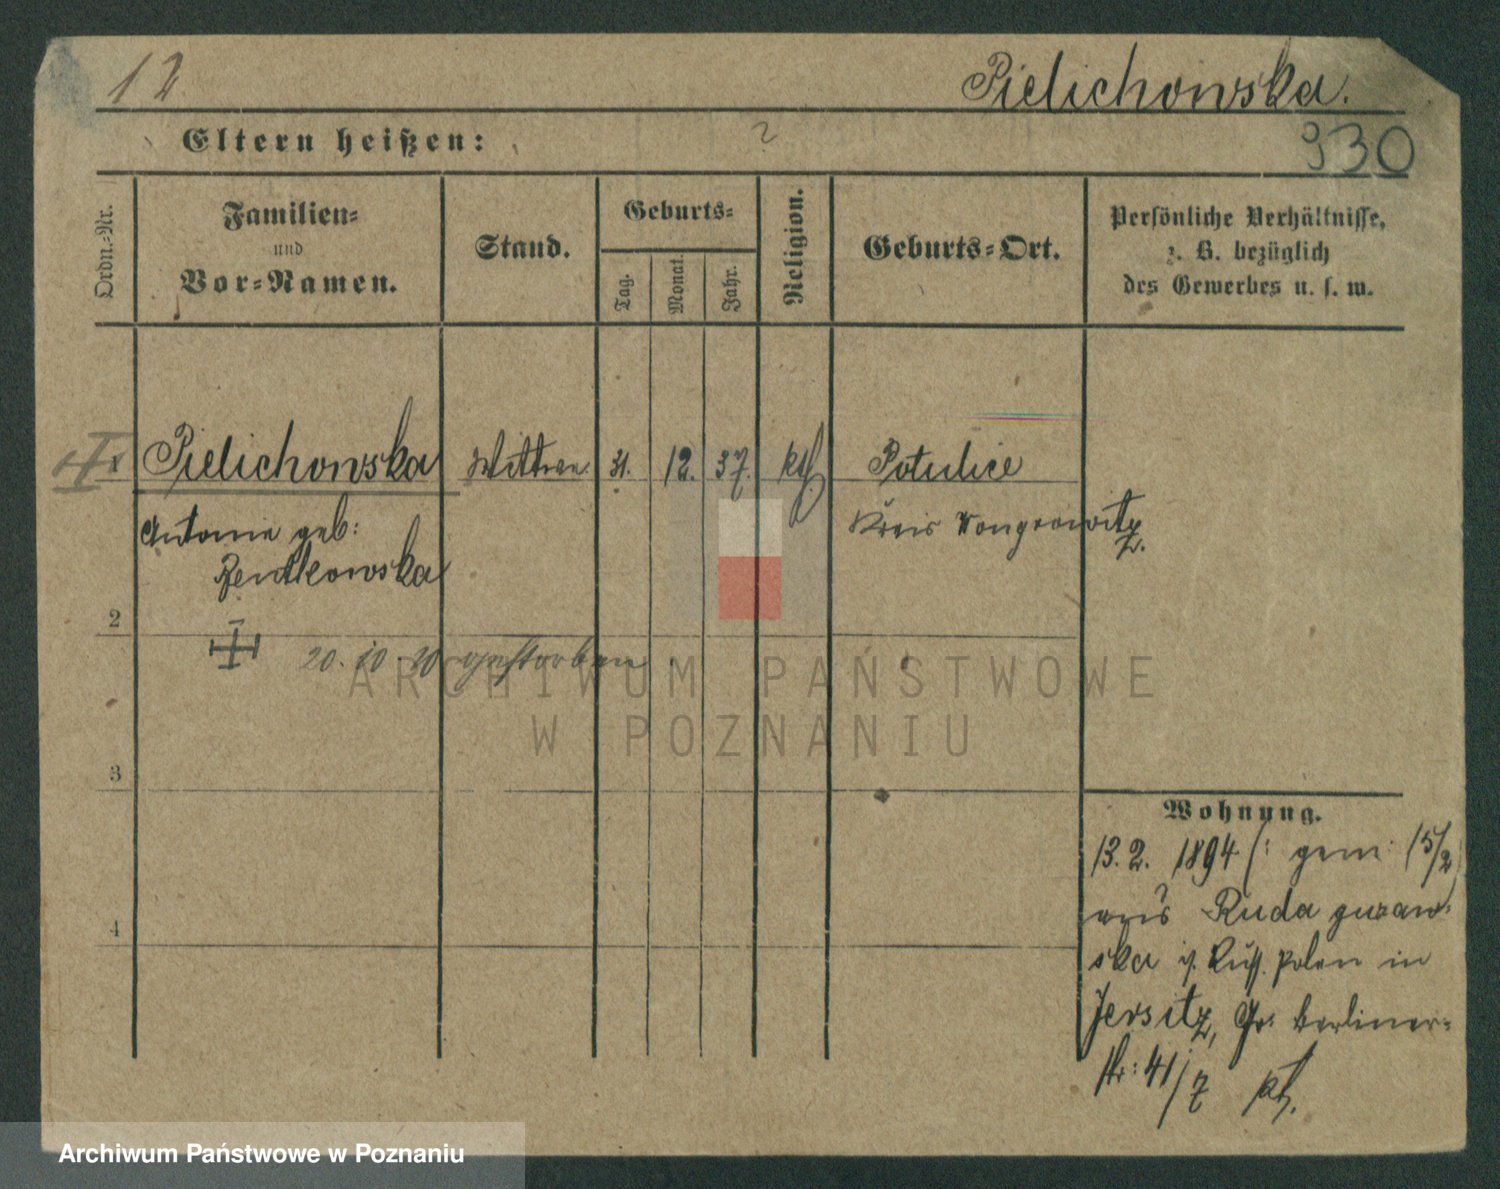 12
Pielichowska.
Eltern heißen:
?
930
Ordn.-Nr.
Familien-
und
Vor-Namen.
Stand.
Geburts-
Tag.
Monat.
Jahr.
Religion.
Geburts-Ort.
Persönliche Verhältnisse,
z. B. bezüglich
des Gewerbes u. s. w.
1
Pielichowska
Wittwe
31.
12.
37.
kth
Potulice
Antonie geb:
Kreis Wongrowitz.
Zentkowska
2
20. 10. 20 gestorben
ARCHIWUM PAŃSTWOWE
W POZNANIU
3
Wohnung.
13. 2. 1894 (: gem: 15/2
aus Ruda guzow-
4
ska i. Russ. Polen in
Jersitz, Gr: Berliner-
str: 41/7
Archiwum Państwowe w Poznaniu